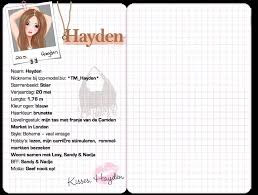 Hayden
Naam: Hayden
Nickname bij top-modelbiz: *TM_Hayden*
Sterrenbeeld: Stier
Verjaardag: 20 mei
Lengte: 1,78 m
Kleur ogen: blauw
Haarkleur: brunette
Lievelingsstuk: mijn tas met franje van de Camden
Market in London
Style: Boheme - veel vintage
Hobby's: lezen, mijn carrière stimuleren, rommel-
markten bezoeken
Woont samen met Lexy, Sandy & Nadja
BFF: Sandy & Nadja
Motto: Geef nooit op!
Kisses, Hayden